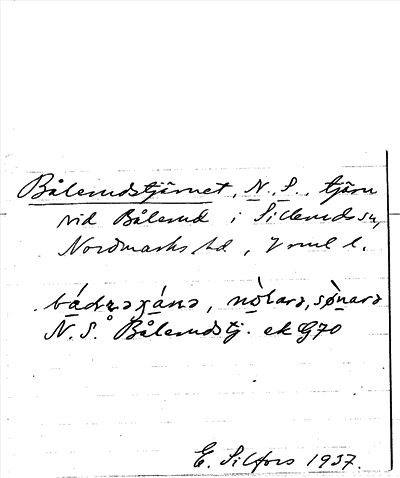 Bålerudstjärnet, N., S., tjärn
vid Bålerud i Silleruds sn,
Nordmarks hd, Vrml l.
nò̱larə, sø̀narə
N. S. Bålerudstj. ek G70
E. Silfors 1937.